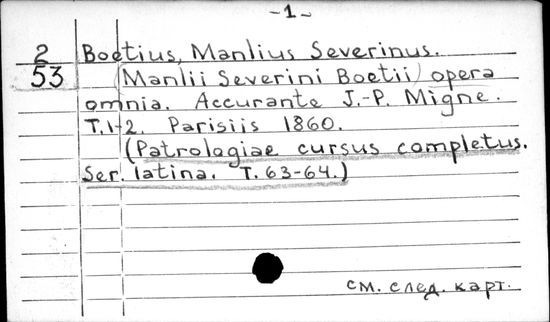 -1-
2 Boetius, Manlius Severinus.
53 (Manlii Severini Boetii) opera
omnia. Accurante J.-P. Migne.
T.1-2. Parisiis 1860.
(Patrologiae cursus completus.
Ser. latina. T. 63-64.)
см. след. карт.